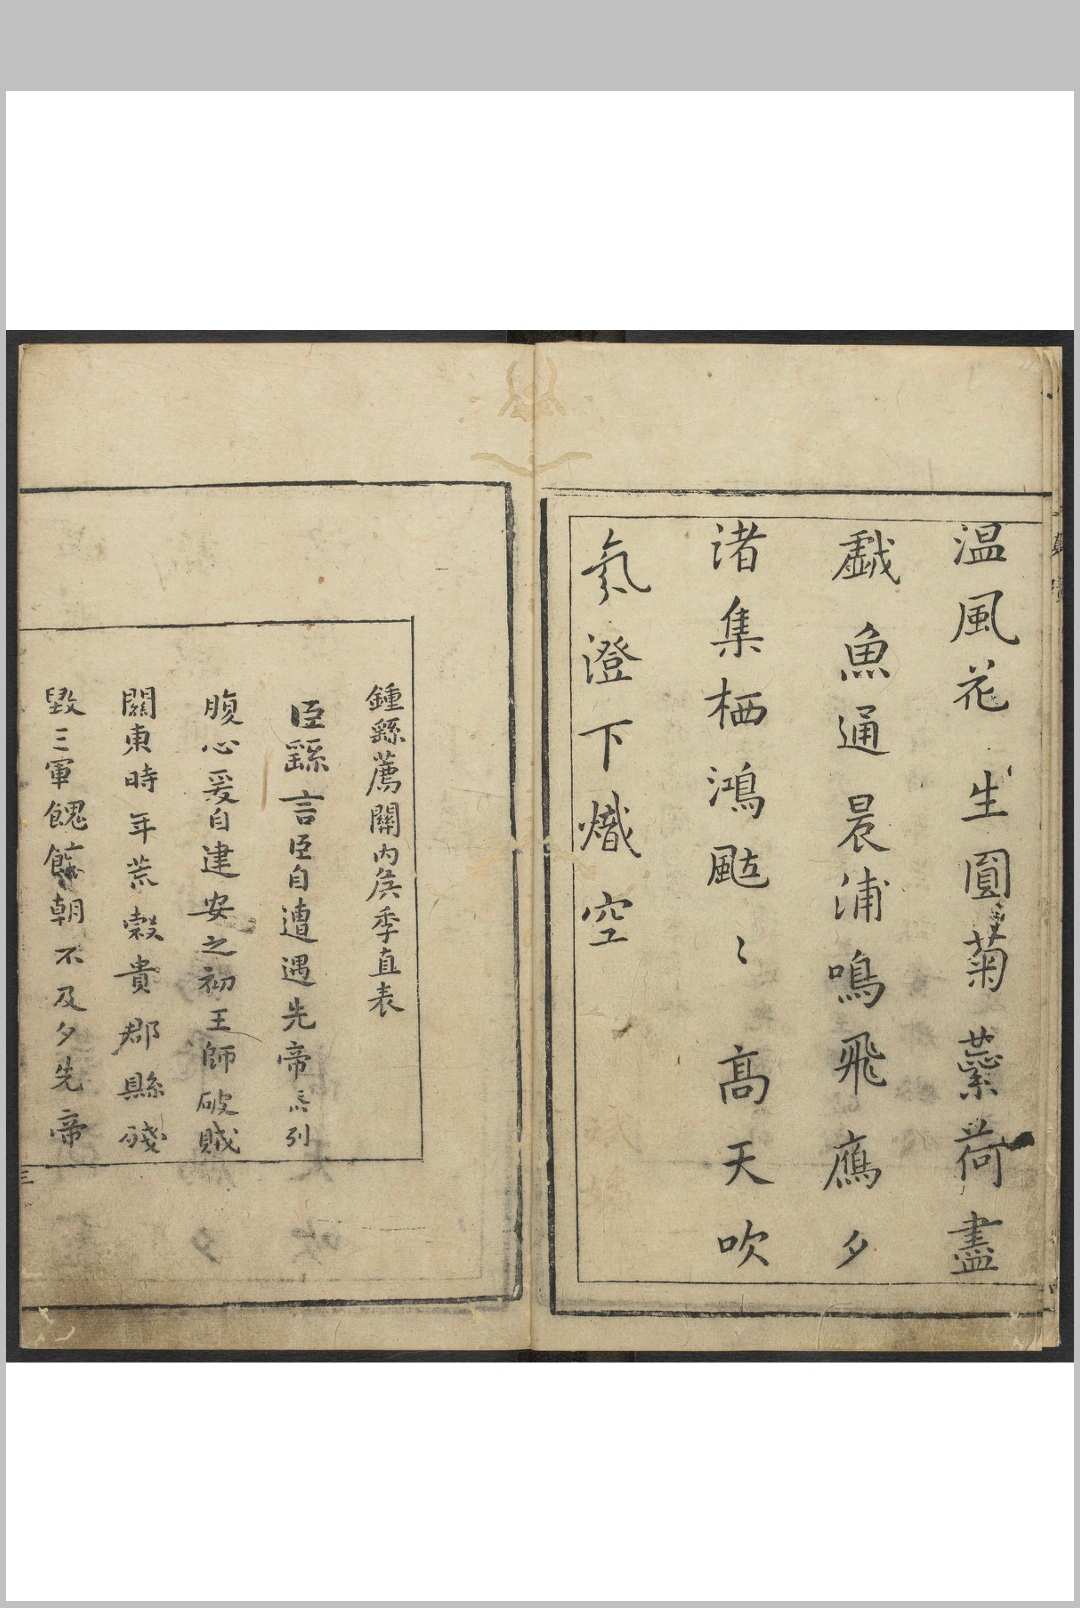 温風花生圓菊蘂荷盡
戱魚通晨浦鳴飛鴈夕
渚集栖鴻颭〻高天吹
氛澄下熾空
鍾繇薦關内矦季直表
臣繇言臣自遭遇先帝忝列
腹心爰自建安之初王師破賊
關東時年荒穀貴郡縣殘
毀三軍餽饟朝不及夕先帝
三